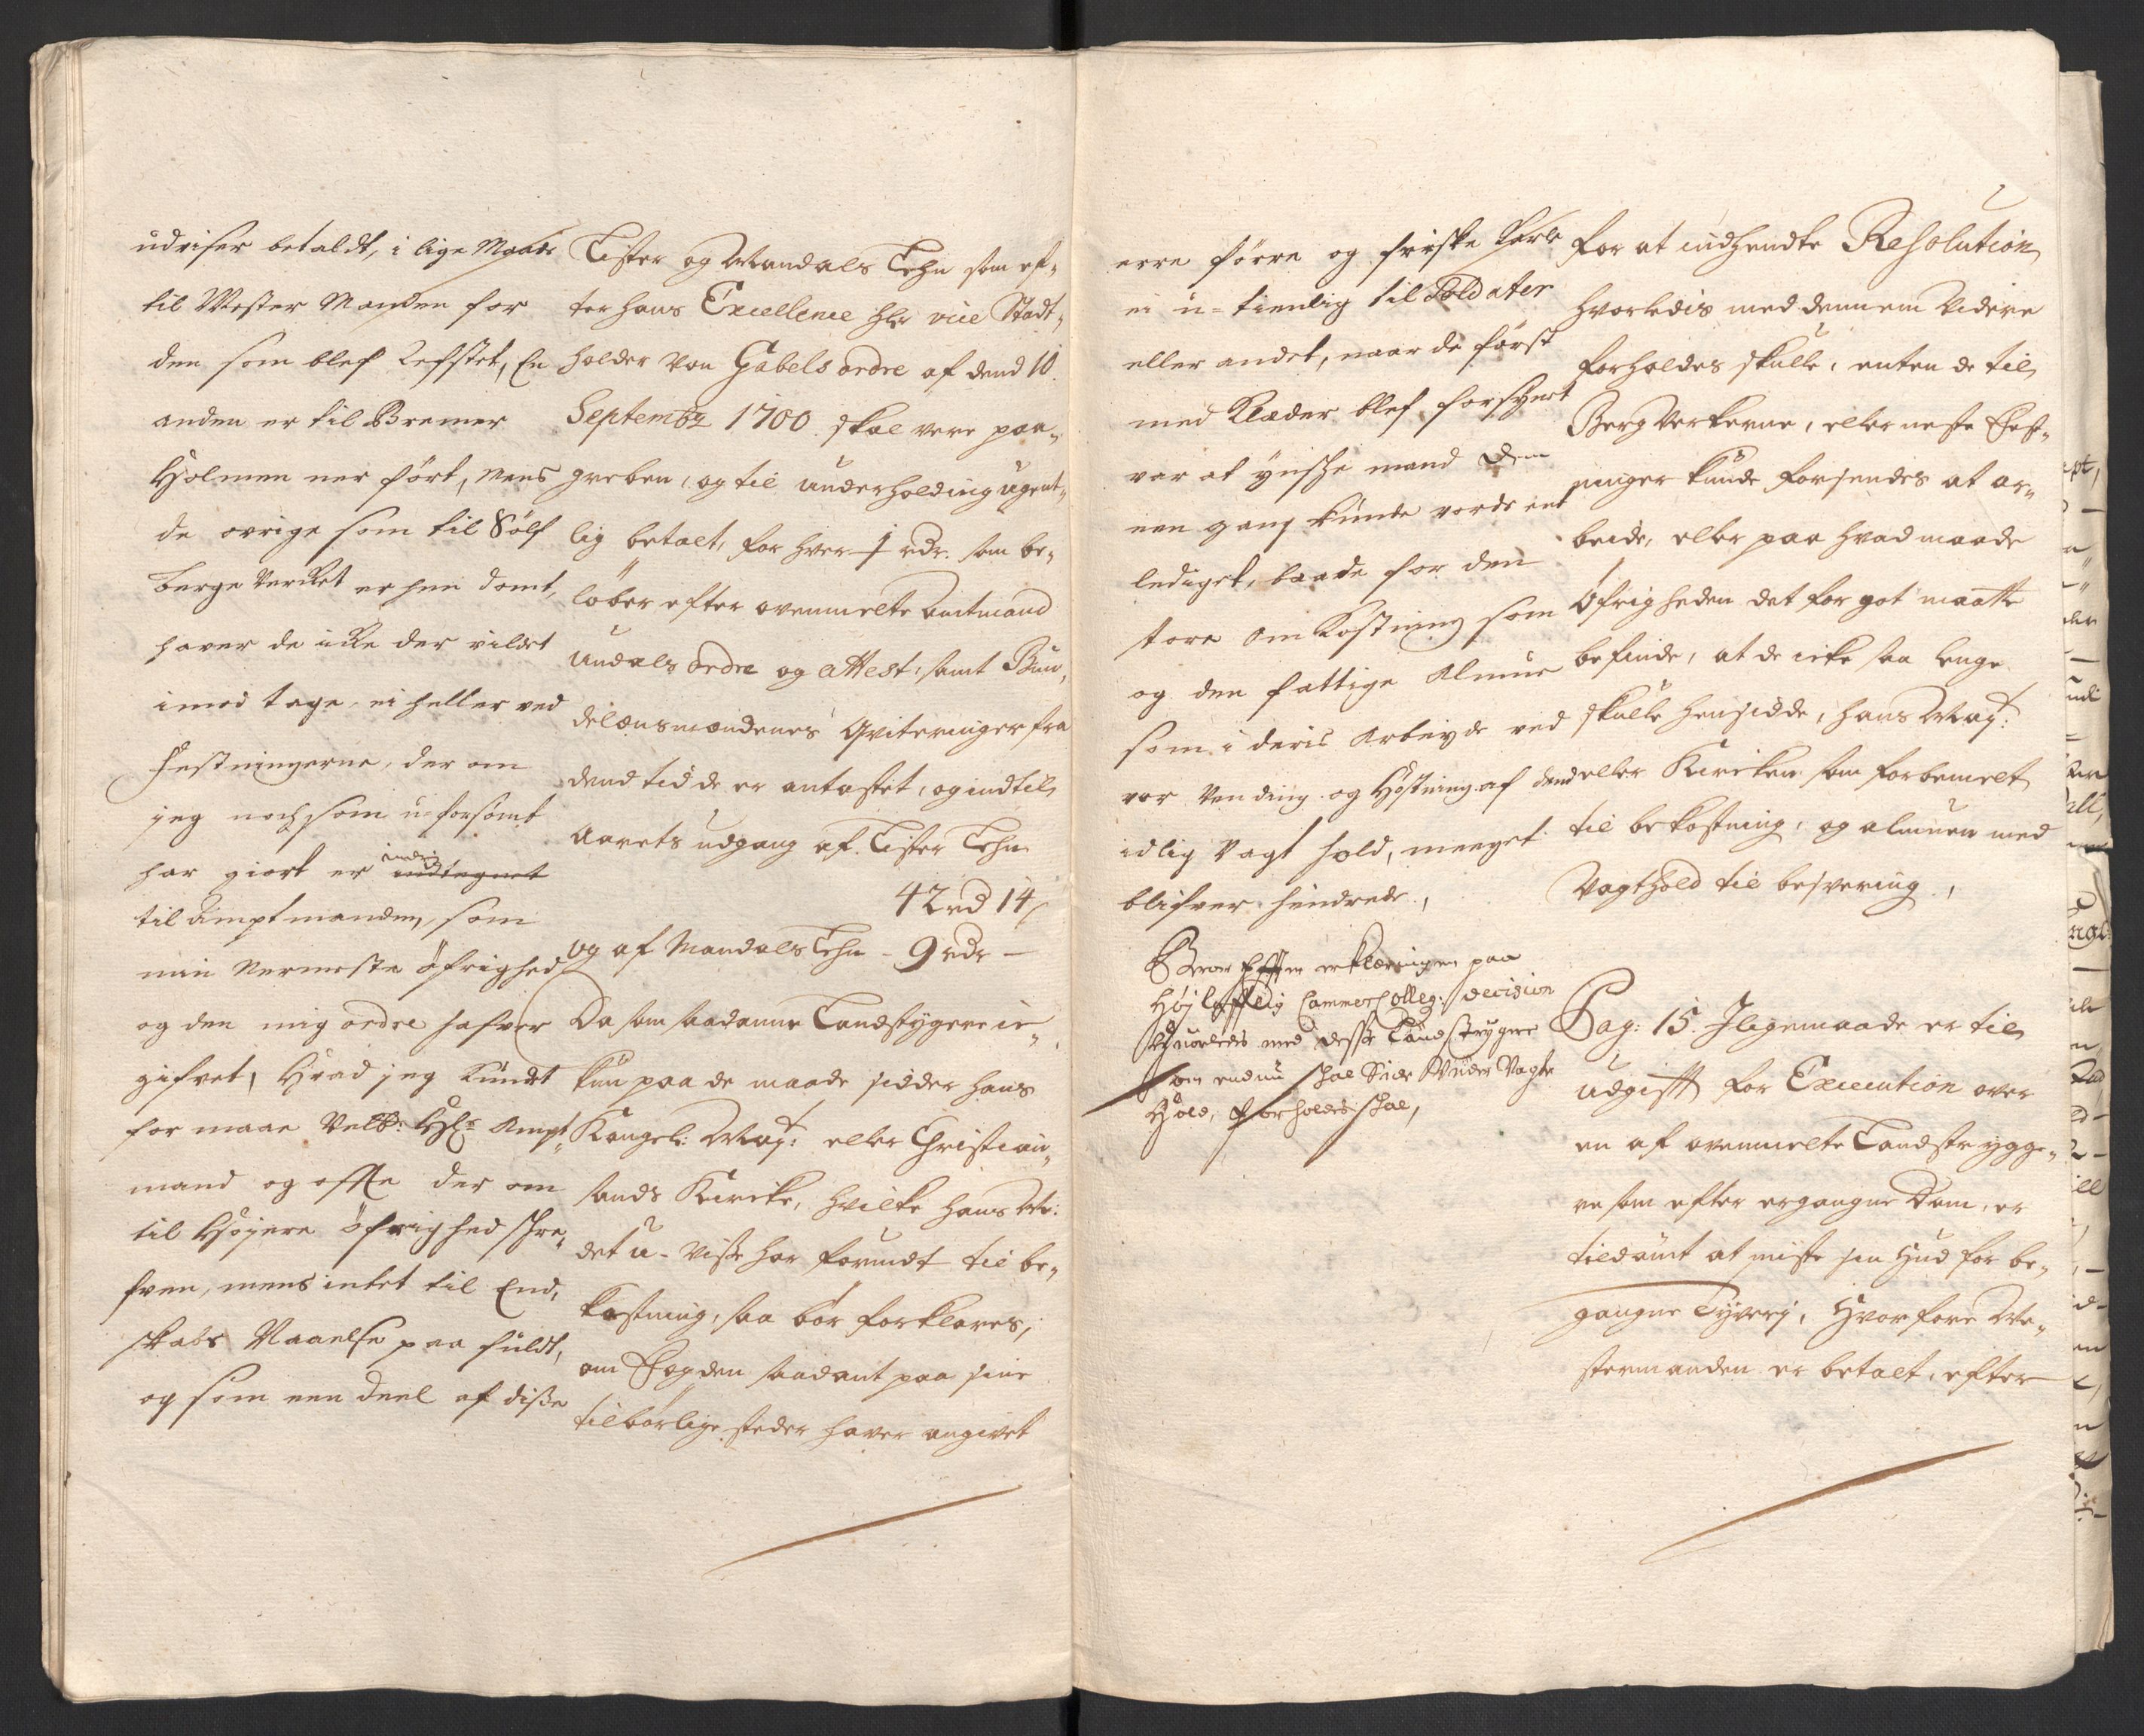 udviser betaldt, i lige Maade
til Mester Manden for
den som blef Refstet, En
anden er til Bremer
Holmen ner ført, mens
de ovrige som til Sölf
berge Verket er hen domt,
haver de icke der vildet
imod tage, ei heller ved
Festningerne, der om
jeg noch som u-forsomt
har giort er
til Amptmanden, som
min Nermeste öfrighed
og den mig ordre hafver
gifvet, Hvad jeg kundt
for maae Velb: Hr: Ampt„
mand og offte der om
til Höyere öfrighed schre„
fven, mens intet til End„
skabs Naaelse paa fuldt,
og som een deel af disse
Lister og Mandals Lehn som ef„
ter hans Excellence Hr vice Stadt„
holder von Gabels ordre af dend 10.
Septembr 1700. skal vere paa„
greben, og til underholding ugent„
lig betalt, for hver 1 rdr. som be„
løber efter ovenmelte Amtmand
Undals ordre og attest: samt Bun„
delænsmændenes Qviteringer fra
dend tid de er antastet, og indtil
Aarets udgang af Lister Lehn
42 rd 14 s
og af Mandals Lehn - 9 rdr -
Da som saadanne Landstrygere ic„
kun paa de maade sidder hans
Kongel: May: eller Christian„
sands Kircke, hvilke hans M:
det u-visse har forundt til be„
kostning, saa bör forklares,
om Fogden saadant paa sine
tilbörlige steder haver angivet
erre större og friske Karle
ei u-tienlig til Soldater
eller andet, naar de först
med Klæder blef forsynt
var at ynsche mand dem
een gang kunde vorde ent
lediget, baade for den
store omkostning som
og den fattige Almue
som i deris Arbeyde ved
vor Vending og Höstning af dend
idlig Vagt hold, meeget
blifver hindrede,
Beroer Effter erklæringen paa
Höjlofflig Cammer Colleg: decision
Hvorledes med desse Landstrygere
som endnu schal Side Under Vagt
Hold, forholdes schal,
for at indhendte Resolution
hvorledis med dennem videre
forholdes skulle, enten de til
Bergverkerne, eller neste Fest„
ninger kunde forsendes at ar„
beide, eller paa hvad maade
Öfrigheden det for got maatte
befinde, at de icke saa lenge
skulle hensidde, hans May:
eller Kircken som forbemelt
til bekostning, og almuen med
Vagthold til besvering,
Pag: 15. I ligemaade er til
udgift for Execution over
en af ovenmelte Landstrygge„
re som efter ergangne Dom, er
tildömt at miste sin Hud for be„
gangne Tyverj, Hvorfore Me„
stermanden er betalt, efter